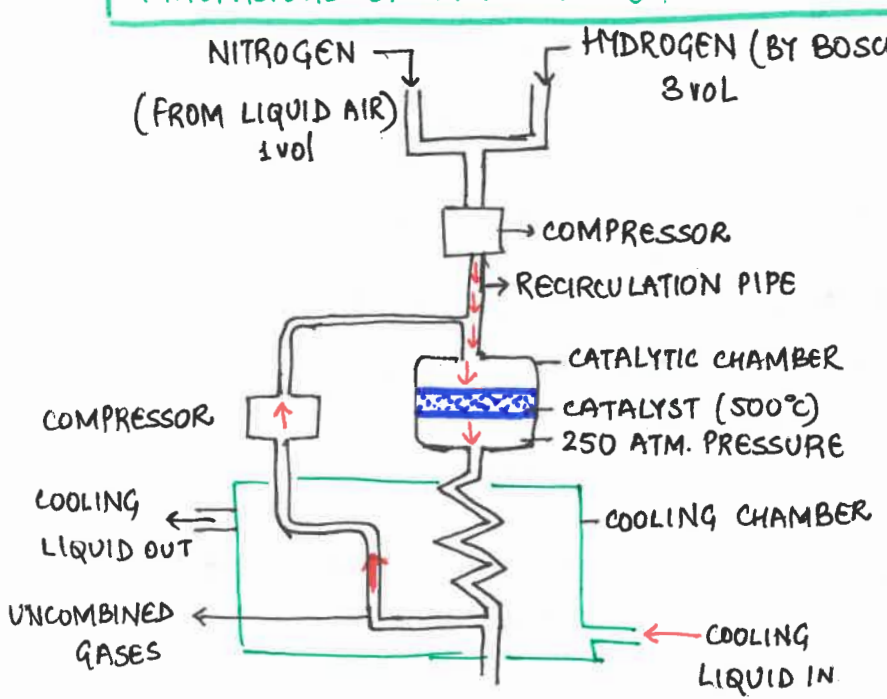 NITROGEN
(FROM LIQUID AIR)
1 vol
HYDROGEN (BY
3 VOL
COMPRESSOR
RECIRCULATION PIPE
CATALYTIC CHAMBER
CATALYST (500°C)
250 ATM. PRESSURE
COMPRESSOR
COOLING
LIQUID OUT
COOLING CHAMBER
UNCOMBINED
GASES
COOLING
LIQUID IN